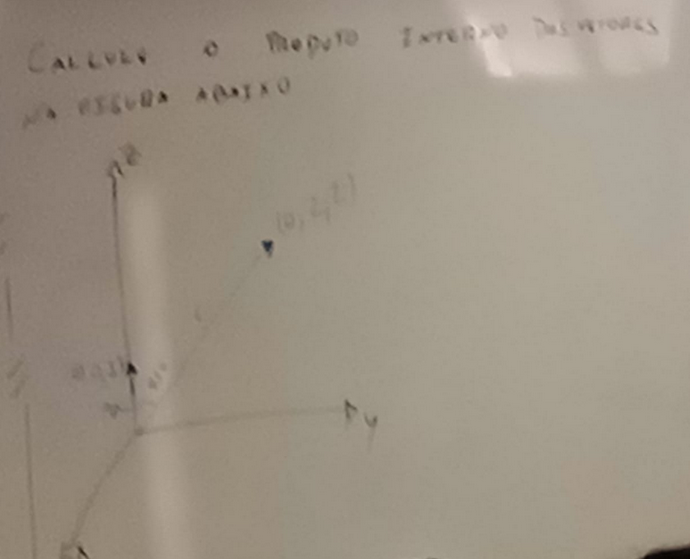 CALCULE O PRODUTO INTERNO DOS VETORES
NA FIGURA ABAIXO
z
(0, 2, 2)
y